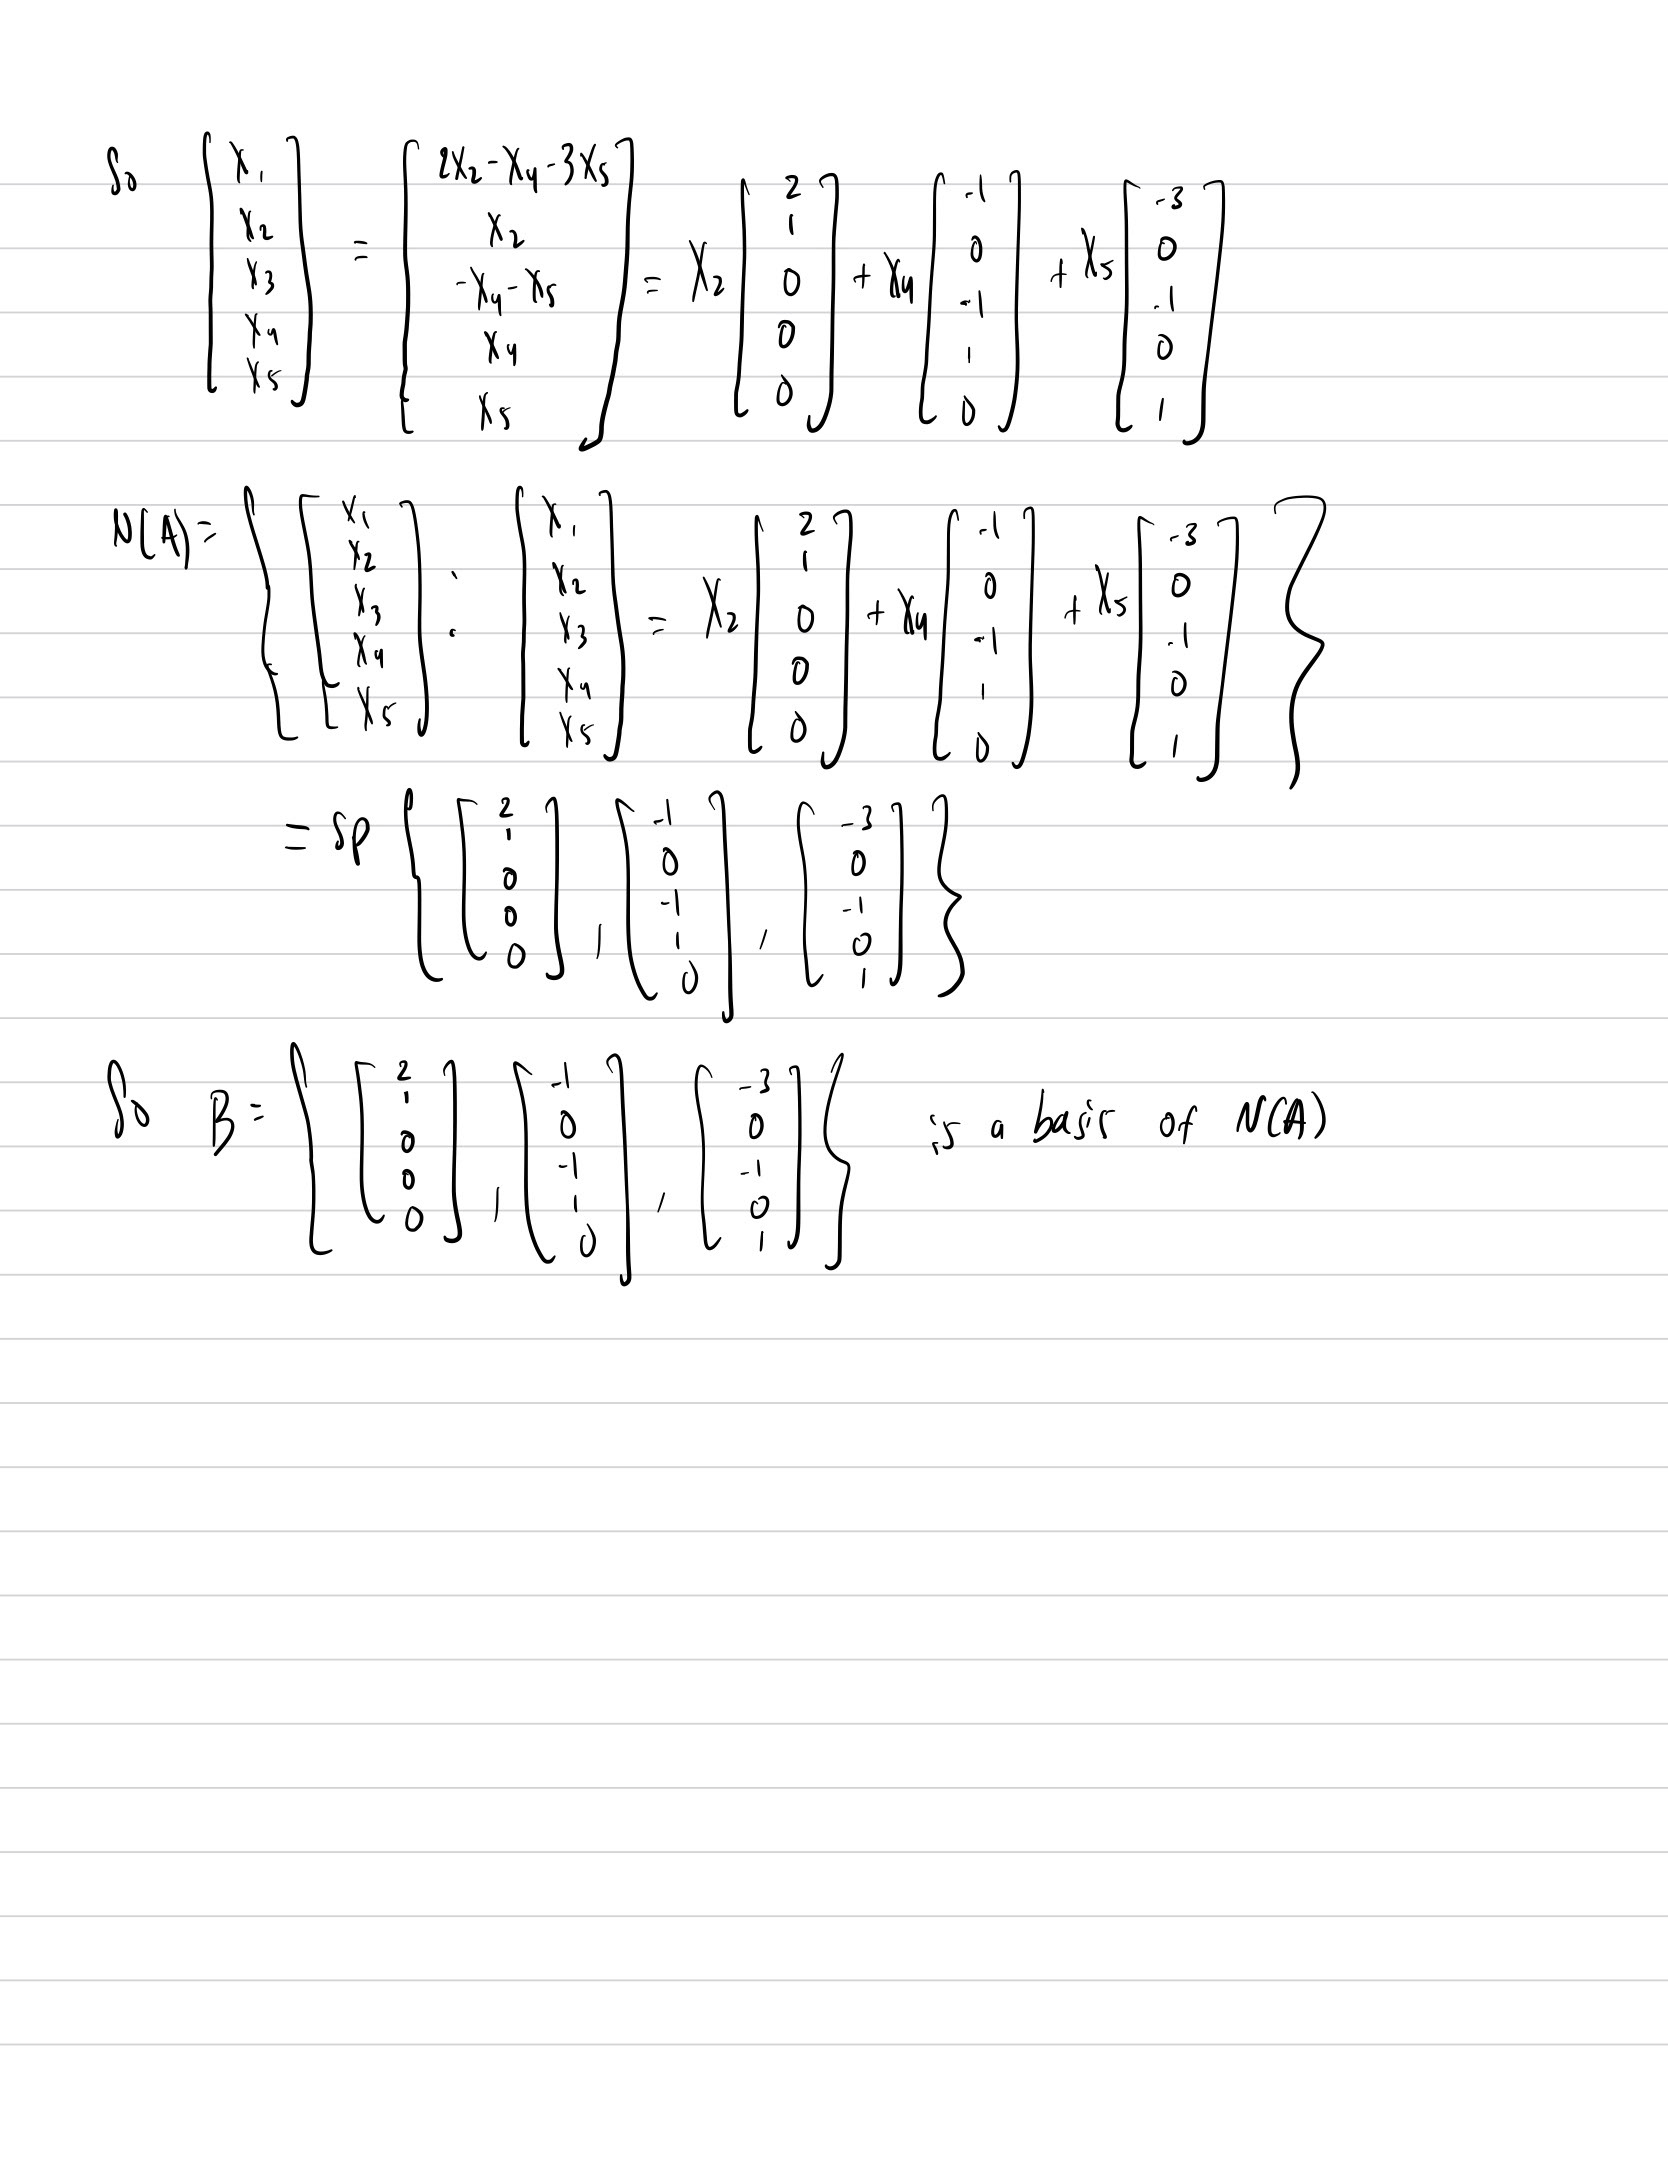 So [x₁ x₂ x₃ x₄ x₅] = [2x₂-x₄-3x₅ x₂ -x₄-x₅ x₄ x₅] = x₂ [2 1 0 0 0] + x₄ [-1 0 -1 1 0] + x₅ [-3 0 -1 0 1]
N(A) = { [x₁ x₂ x₃ x₄ x₅] : [x₁ x₂ x₃ x₄ x₅] = x₂ [2 1 0 0 0] + x₄ [-1 0 -1 1 0] + x₅ [-3 0 -1 0 1] }
= sp { [2 1 0 0 0] , [-1 0 -1 1 0] , [-3 0 -1 0 1] }
So B = { [2 1 0 0 0] , [-1 0 -1 1 0] , [-3 0 -1 0 1] } is a basis of N(A)